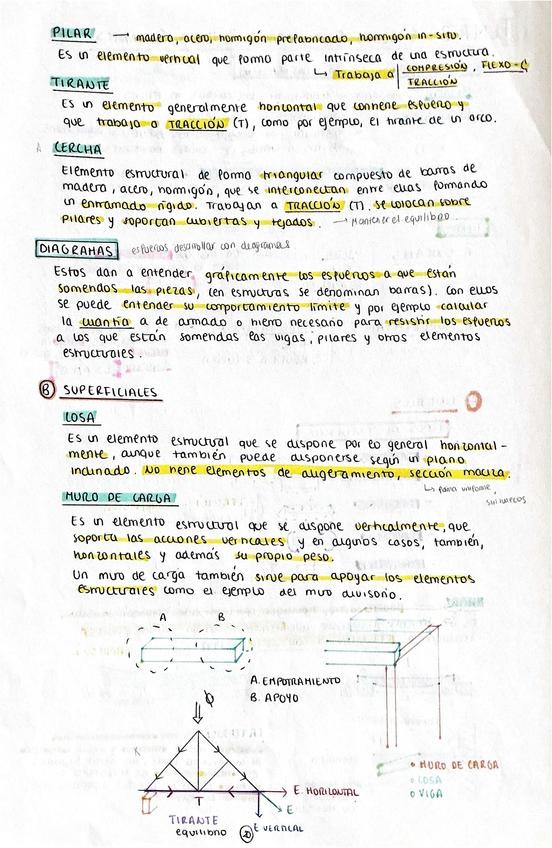 PILAR → madera, acero, hormigón prefabricado, hormigón in-situ.
Es un elemento vertical que forma parte intrínseca de una estructura.
↳ Trabaja a COMPRESIÓN, FLEXO-C
TRACCIÓN
TIRANTE
Es un elemento generalmente horizontal que contiene esfuerzo y
que trabaja a TRACCIÓN (T), como por ejemplo, el tirante de un arco.
CERCHA
Elemento estructural de forma triangular compuesto de barras de
madera, acero, hormigón, que se interconectan entre ellas formando
un entramado rígido. Trabajan a TRACCIÓN (T). Se colocan sobre
pilares y soportan cubiertas y tejados. → Mantener el equilibrio
DIAGRAMAS esfuerzos, desarrollar con diagramas
Estos dan a entender gráficamente los esfuerzos a que están
sometidos las piezas, (en estructuras se denominan barras). Con ellos
se puede entender su comportamiento límite y por ejemplo calcular
la cuantía a de armado o hierro necesario para resistir los esfuerzos
a los que están sometidas las vigas, pilares y otros elementos
estructurales.
B SUPERFICIALES
LOSA
Es un elemento estructural que se dispone por lo general horizontal-
mente, aunque también puede disponerse según un plano
inclinado. No tiene elementos de aligeramiento, sección maciza.
↳ plana uniforme,
sin huecos
MURO DE CARGA
Es un elemento estructural que se dispone verticalmente, que
soporta las acciones verticales y en algunos casos, también,
horizontales y además su propio peso.
Un muro de carga también sirve para apoyar los elementos
estructurales como el ejemplo del muro divisorio.
A B
A. EMPOTRAMIENTO
B. APOYO
E. HORIZONTAL
T
E
TIRANTE
equilibrio
E VERTICAL
• MURO DE CARGA
• LOSA
• VIGA